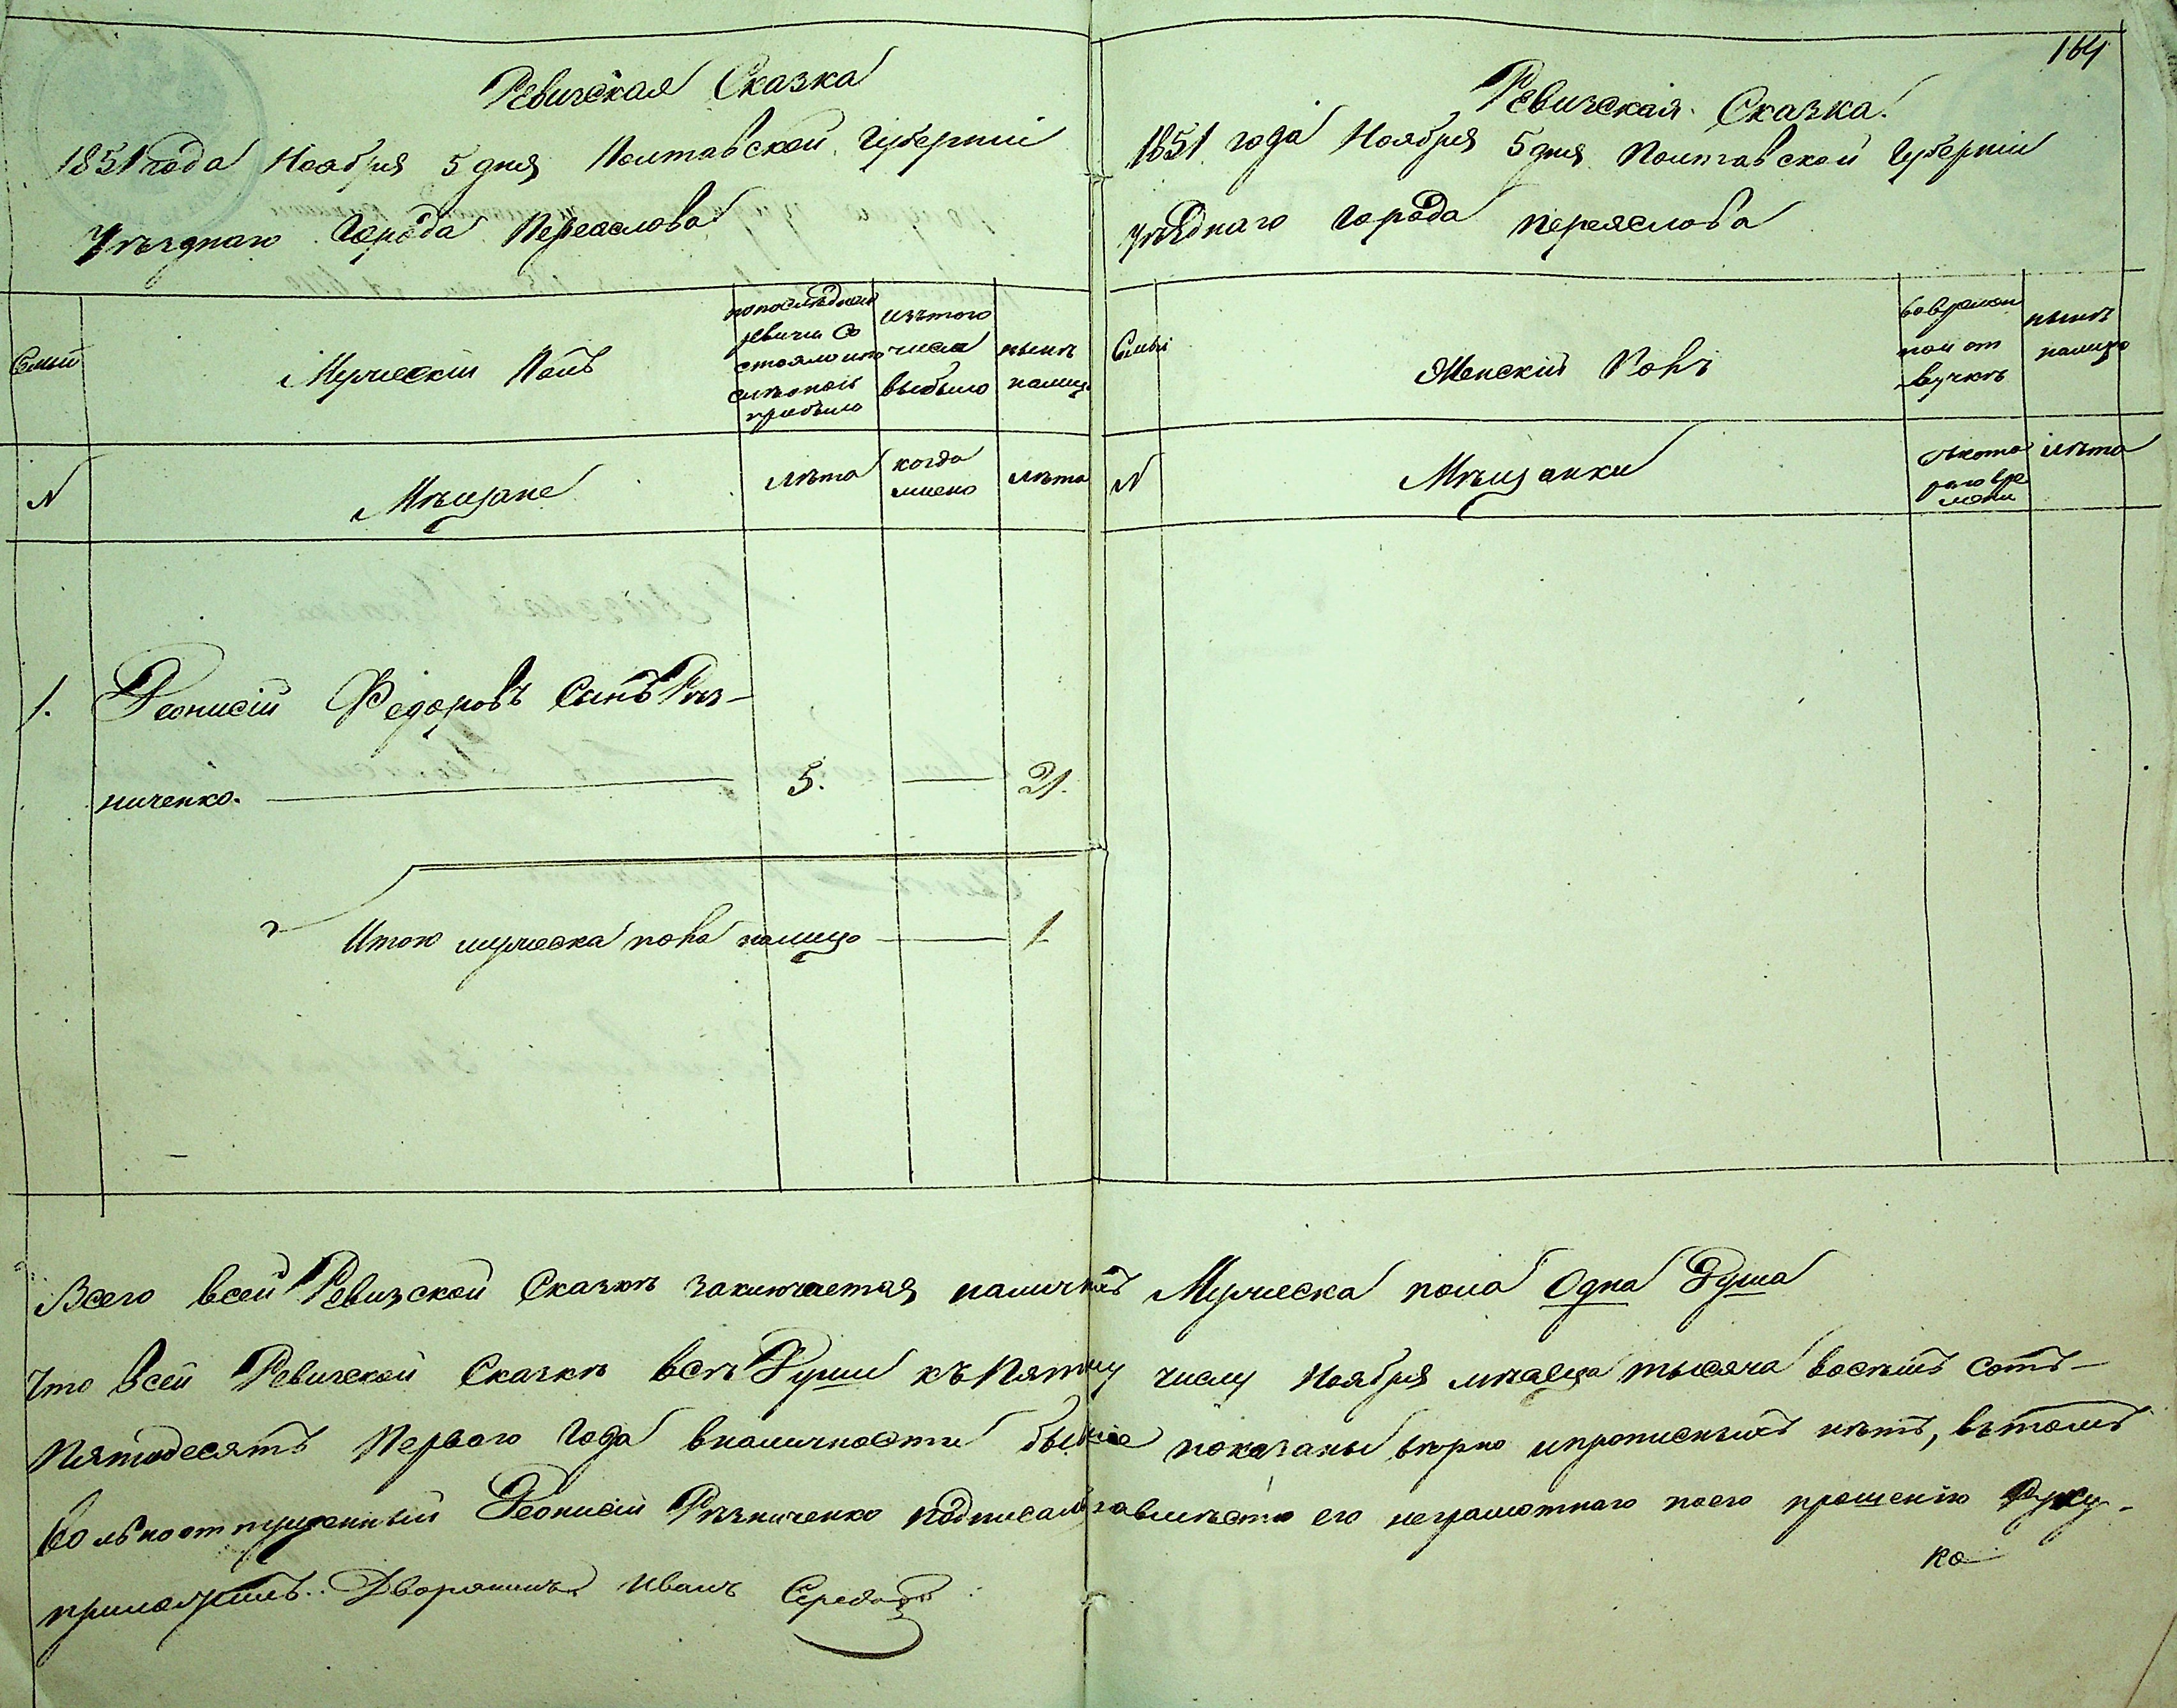 Ревизская Сказка
1851 года Ноября 5 дня Полтавской Губернии
Уѣзднаго Города Переяслова
Семьи
Мужескій Полъ
по послѣдней
ревизіи со
стояло и по
слѣ оной
прибыло
изъ того
числа
выбыло
нынѣ
налицо
N
Мѣщане
лѣта
когда
имено
лѣта
1. Деонисій Федоровъ Сынъ Рѣз-
ниченко. 5. 21.
Итого мужеска пола налицо 1
164
Ревизская Сказка.
1851 года Ноября 5 дня Полтавской Губерніи
Уѣзднаго Города Переяслова
Семьи
Женскій Полъ
во времен
ной от
лучкѣ
нынѣ
налицо
N
Мѣщанки
съ кото
раго вре
мени
лѣта
Всего всей Ревизской Сказкѣ заключается наличныхъ Мужеска пола Одна Душа
Что всей Ревизской Сказкѣ всѣ Души къ Пятому числу Ноября мѣсяца тысяча восѣмъ сотъ
Пятьдесятъ Первого Года вналичности бывшіе показаны вѣрно ипрописныхъ нѣтъ, вътомъ
вольноотпущенный Деонисій Рѣзниченко подписалъ авмѣсто его неграмотнаго поего прошенію Руку
приложилъ. Дворянинъ Иванъ